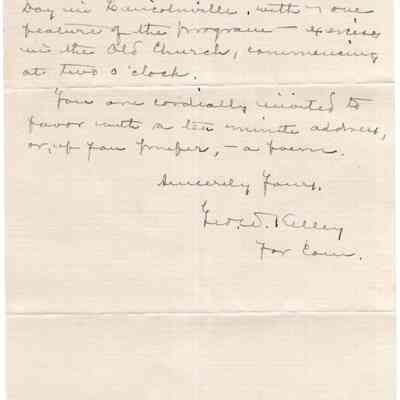 Day in Lincolnville, with one
feature of the program — exercises
in the Old Church, commencing
at two o'clock.
You are cordially invited to
favor with a ten minute address,
or, if you prefer, — a poem.
Sincerely Yours,
Geo. D. Kelley
For Com.